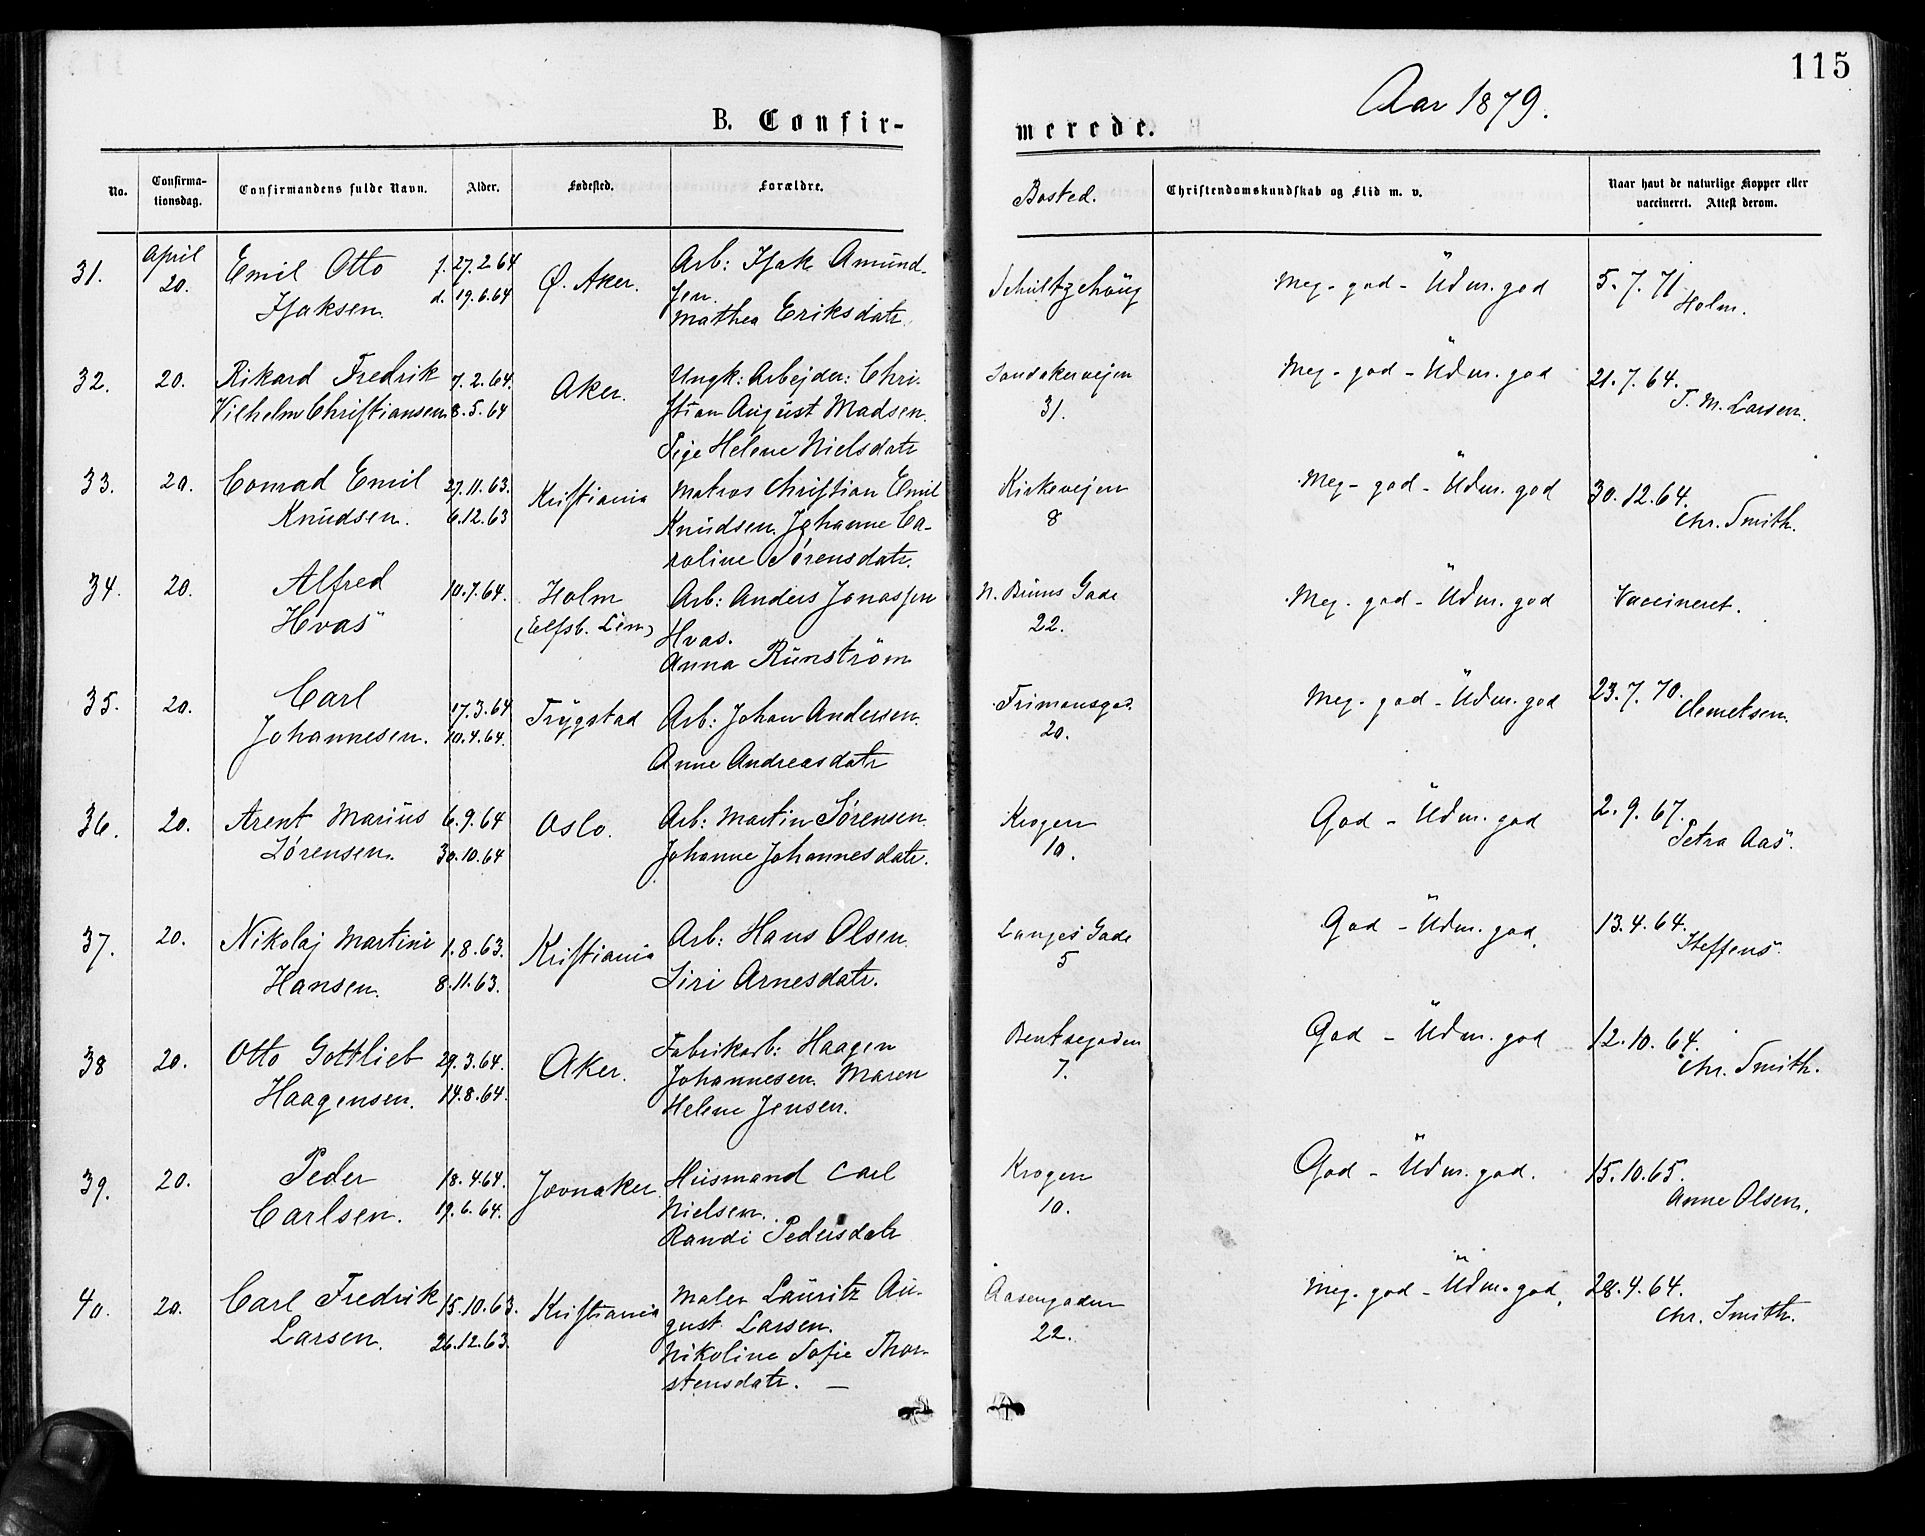 115
Aar 1879.
B. Confir-
merede.
No.
Confirma-
tionsdag.
Confirmandens fulde Navn.
Alder.
Fødested.
Forældre.
Bosted.
Christendomskundskab og Flid m. v.
Naar havt de naturlige Kopper eller
vaccineret. Attest derom.
31.
April
20.
Emil Otto
Isaksen.
f. 27.2.64
d. 19.6.64
Ø. Aker.
Arb: Isak Amund-
sen.
Mathea Eriksdatr.
Schultzehaug
Meg. god - Udm. god
5.7.71
Holm.
32.
20.
Rikard Fredrik
Vilhelm Christiansen
7.2.64.
8.5.64
Aker.
Ungk: Arbejder: Chri-
stian August Madsen.
Pige Helene Nielsdatr
Sandakervejen
31.
Meg. god - Udm. god
21.7.64.
T. M. Larsen.
33.
20.
Conrad Emil
Knudsen.
27.11.63.
6.12.63
Kristiania
Matros Christian Emil
Knudsen. Johanne Ca-
roline Sørensdatr.
Kirkevejen
8
Meg. god - Udm. god
30.12.64.
Chr. Smith.
34.
20.
Alfred
Hvas
10.7.64.
Holm
(Elfsb. Len)
Arb: Anders Jonassen
Hvas.
Anna Runstrøm
N. Bruns Gade
22.
Meg. god - Udm. god
Vaccineret.
35.
20.
Carl
Johannesen.
17.3.64
10.4.64.
Trygstad
Arb: Johan Andersen.
Anne Andreasdatr
Frimansgad.
20.
Meg. god - Udm. god
23.7.70.
Clemetsen.
36.
20.
Arent Marius
Sørensen.
6.9.64
30.10.64
Oslo.
Arb: Martin Sørensen.
Johanne Johannesdatr.
Krogen
10.
God - Udm. god
2.9.67.
Petra Aas.
37.
20.
Nikolaj Martini
Hansen.
1.8.63.
8.11.63.
Kristiania
Arb: Hans Olsen.
Siri Arnesdatr.
Langes Gade
5
God - Udm. god.
13.4.64.
Steffens.
38
20.
Otto Gottlieb
Haagensen.
29.3.64.
14.8.64.
Aker.
Fabrikarb: Haagen
Johannesen. Maren
Helene Jensen.
Bentsegaden
7.
God - Udm. god
12.10.64.
Chr. Smith.
39.
20.
Peder
Carlsen.
18.4.64.
19.6.64.
Jovnaker.
Husmand Carl
Nielsen.
Randi Pedersdatr
Krogen
10.
God - Udm. god.
15.10.65.
Anne Olsen.
40.
20.
Carl Fredrik
Larsen.
15.10.63.
26.12.63.
Kristiania
Maler Lauritz Au-
gust Larsen.
Nikoline Sofie Thor-
stensdatr. —
Aasengaden
22.
Meg. god - Udm. god.
28.4.64.
Chr. Smith.